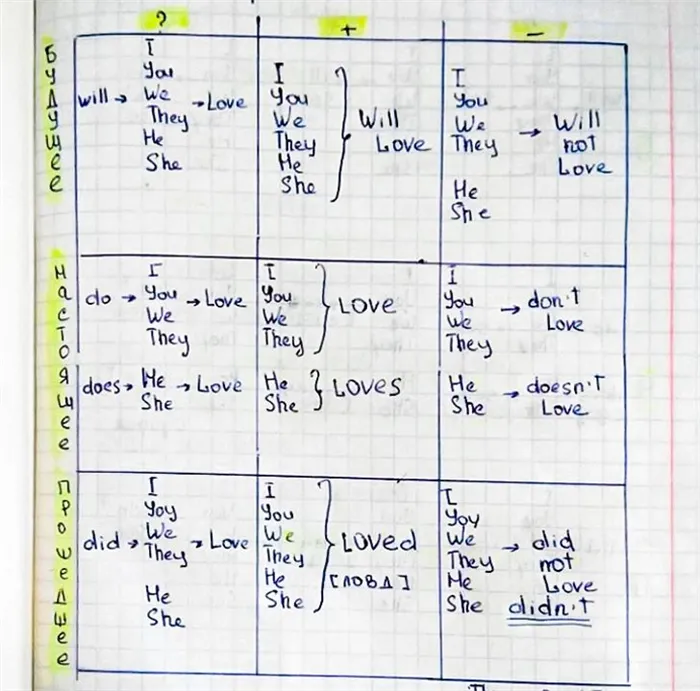 ? + -
БУДУЩЕЕ
will → I You We They He She → Love
I You We They He She } Will Love
I You We They He She → Will not Love
НАСТОЯЩЕЕ
do → I You We They → Love
I You We They } Love
I You We They → don't Love
does → He She → Love
He She } Loves
He She → doesn't Love
ПРОШЕДШЕЕ
did → I Yoy We They He She → Love
I You We They He She } Loved [ЛОВД]
I Yoy We They He She → did not Love didn't